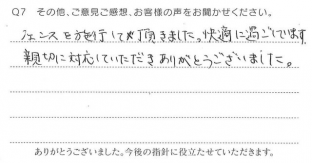 Q7 その他、ご意見ご感想、お客様の声をお聞かせください。
フェンスを施行して頂きました。快適に過ごしています。
親切に対応していただきありがとうございました。
ありがとうございました。今後の指針に役立たせていただきます。